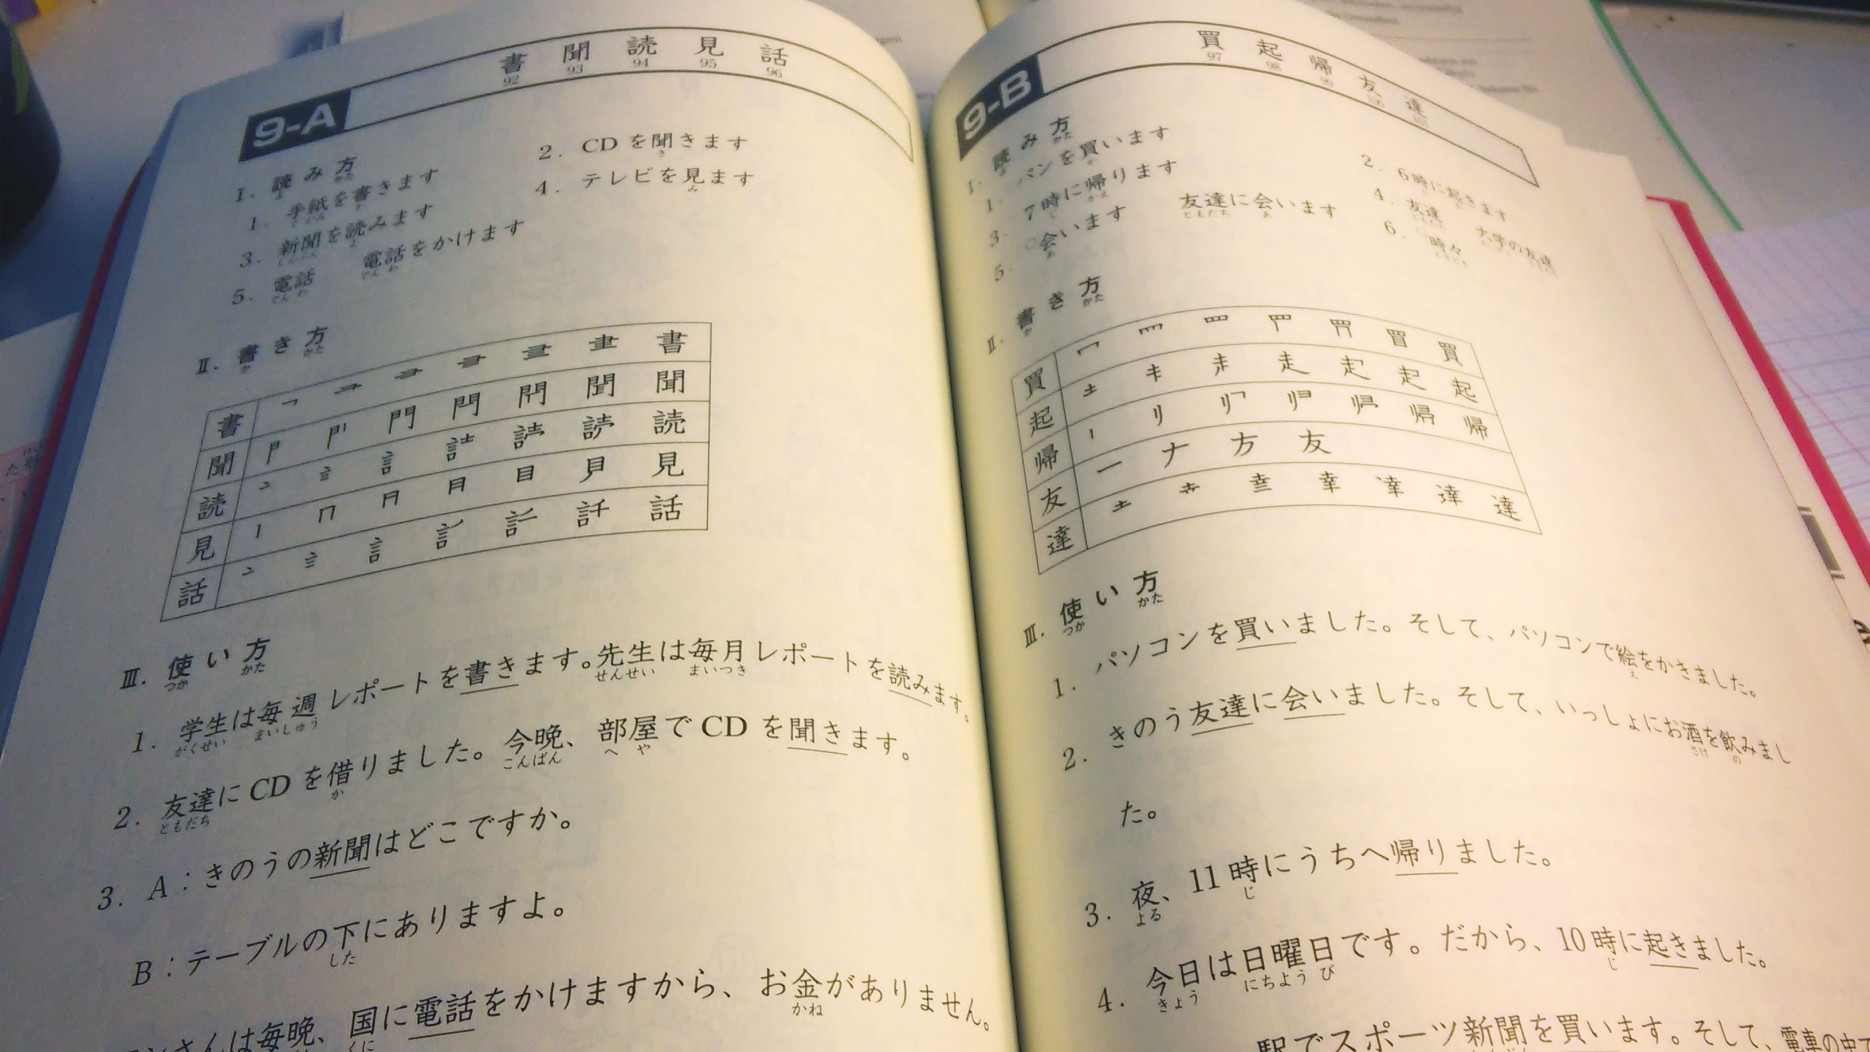 9-A 書 聞 読 見 話
92 93 94 95 96
I. 読み方
よ かた
1. 手紙を書きます 2. CDを聞きます
3. 新聞を読みます 4. テレビを見ます
5. 電話 電話をかけます
でんわ でんわ
II. 書き方
か かた
書 書
聞 門 門 聞 聞
読 言 読
見 目 見
話 言 話
III. 使い方
つか かた
1. 学生は毎週レポートを書きます。先生は毎月レポートを読みます。
がくせい まいしゅう せんせい まいつき
2. 友達にCDを借りました。今晩、部屋でCDを聞きます。
ともだち か こんばん へや
3. A:きのうの新聞はどこですか。
B:テーブルの下にありますよ。
した
さんは毎晩、国に電話をかけますから、お金がありません。
くに かね
9-B 買 起 帰 友 達
97 98
I. 読み方
かた
1. パンを買います 2. 6時に起きます
3. 7時に帰ります 4. 友達 大学の友達
5. 会います 友達に会います 6. 時々
あ ともだち あ
II. 書き方
か かた
買 買
起 土 走 起
帰 帰
友 一 ナ 方 友
達 土 幸 達
III. 使い方
つか かた
1. パソコンを買いました。そして、パソコンで絵をかきました。
え
2. きのう友達に会いました。そして、いっしょにお酒を飲みまし
さけ の
た。
3. 夜、11時にうちへ帰りました。
よる じ
4. 今日は日曜日です。だから、10時に起きました。
きょう にちようび じ
駅でスポーツ新聞を買います。そして、電車の中で